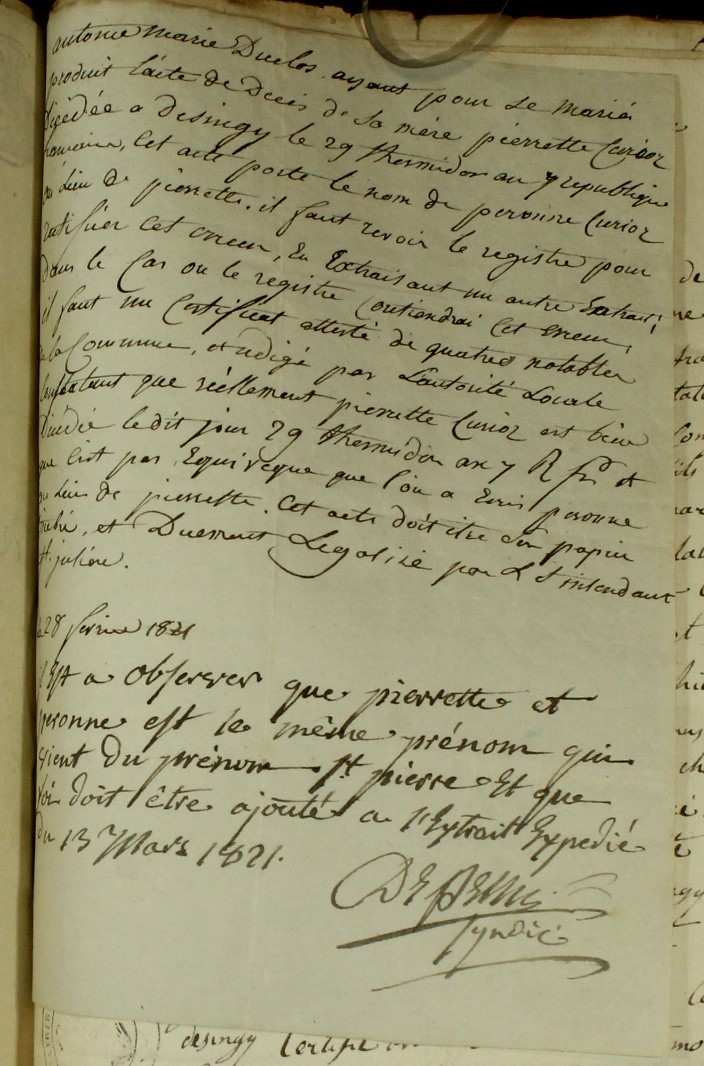 antoine Marie Duclos ayant pour se marié
produit l'acte de Décis de sa mère pierrette Curioz
Décédée a Desingy le 29 thermidor an 7 republique
Cet acte porte le nom de peronne Curioz
au lieu de pierrette. il faut revoir le registre pour
rectifier cet erreur, En Extraisant un autre Extrait;
Dans le Cas ou le registre Contiendrai Cet erreur,
il faut un Certificat attesté de quatre notables
de la Commune, et redigé par L'autorité Locale
Constatant que réellement pierrette Curioz est bien
Décédée le dit jour 29 thermidor an 7 R f. et
que C'est par Equivoque que l'on a Ecris peronne
au lieu de pierrette. Cet acte doit être sur papier
timbré, et Duement Legalisé par L'intendant
St. julien.
28 fevrier 1821
il Est a observer que pierrette et
peronne est le même prénom qui
vient du prénom St pierre Et que
foi doit être ajouté a l'Extrait Expedié
du 13 Mars 1821.
Syndic
de
desingy Certifie